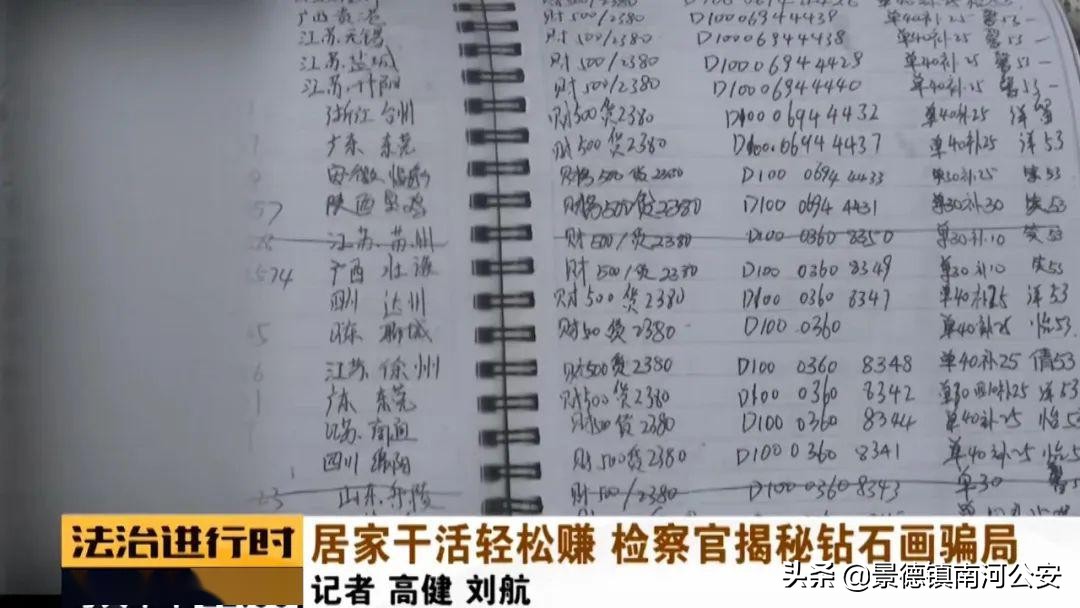 江苏无锡 财500/2380 D10006944438 单40补25 馨53 -
江苏盐城 财500/2380 D10006944428 单40补25 馨53 -
江苏 丹阳 财500/2380 D10006944440 单40补25 馨53 -
浙江 台州 财500货2380 D10006944432 单40补25 洋
广东 东莞 财500货2380 D10006944437 单40补25 洋53
安徽 财 500 货2380 D100 0694 4433 单30补25 53
陕西 宝鸡 财 500货2380 D100 0694 4431 单30补30 53
江苏. 苏州 财500/货2380 D100 0360 8350 单30补10 53
74 广西 财 500/货2380 D100 0360 8349 单30补10 53
四川 达州 财500货2380 D100 0360 8347 单40补25 洋53
聊城 财500货2380 D100 0360 单40补25 怡53
6 江苏 徐州 财500货2380 D100 0360 8348 单40补25 倩53
广东 东莞 财500货2380 D100 0360 8342 补25 洋53
江苏. 南通 财500货2380 D100 0360 8344 单40补25 怡5
四川 绵阳 财500货2380 D100 0360 8341 单40补25 怡5
23 山东. 财500/2380 D100 0360 8343 单30
法治进行时
居家干活轻松赚 检察官揭秘钻石画骗局
记者 高健 刘航
头条 @景德镇南河公安